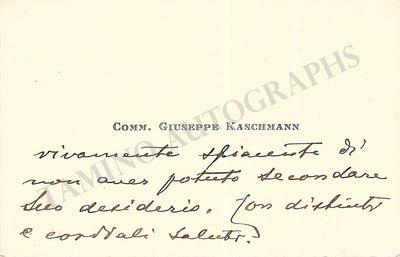 TAMINO AUTOGRAPHS
COMM. GIUSEPPE KASCHMANN
vivamente spiacente di
non aver potuto secondare
Suo desiderio. Con distinti
e cordiali saluti.